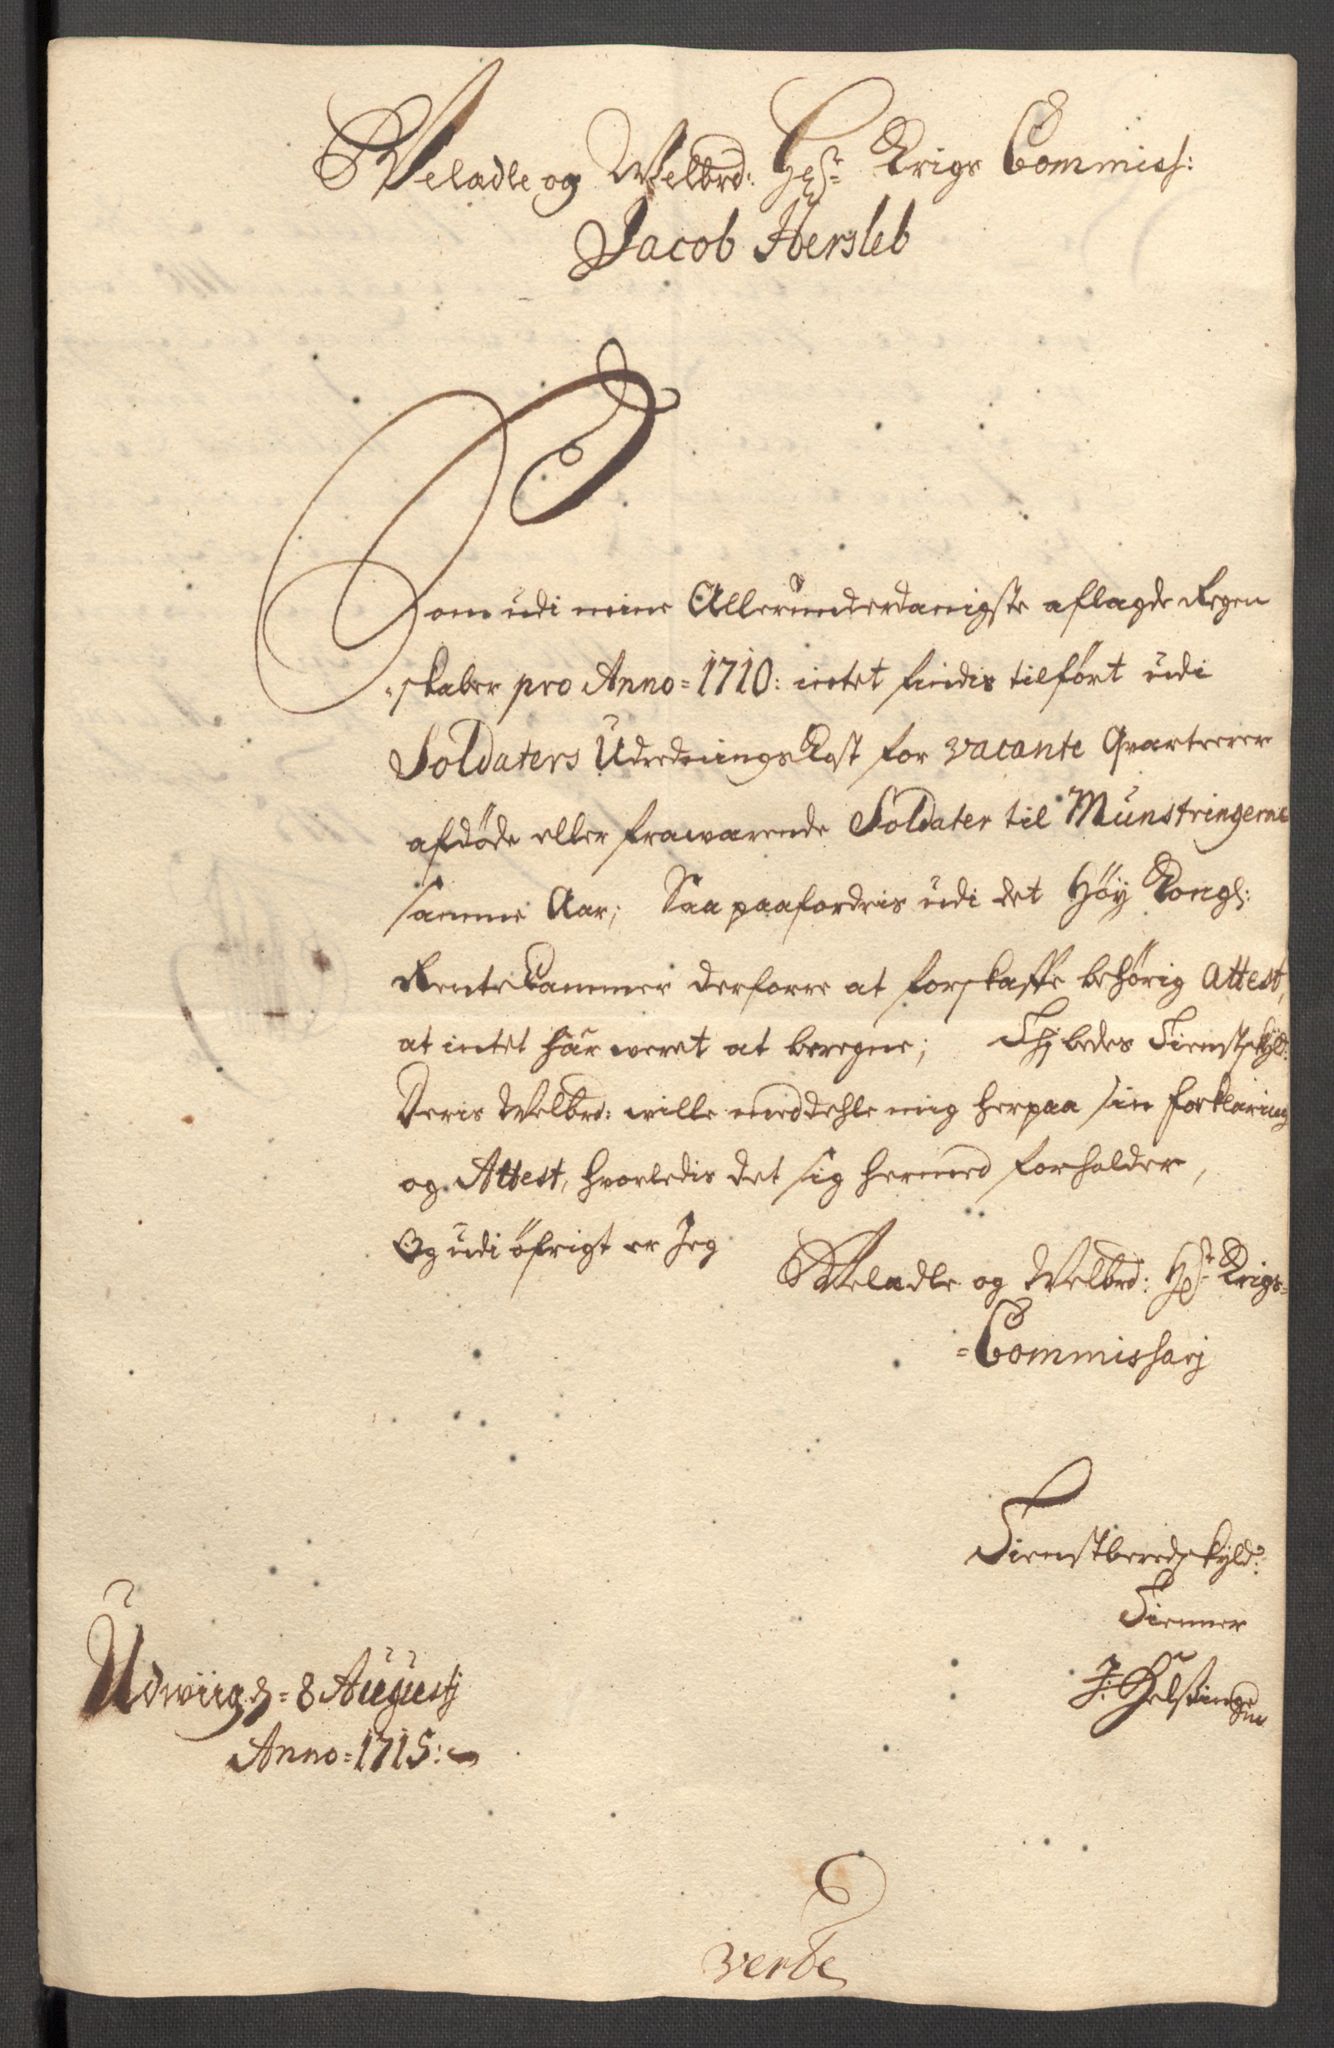 Weladle og Welbrd: Hr: Krigs Commiss:
Jacob Hersleb
Som udi mine Allerunderdanigste aflagde Regen
-skaber pro Anno=1710: intet findis tilført udi
Soldaters Udrednings Kost for vacante Qvarterer
afdøde eller frawærende Soldater til Munstringerne
samme Aar; Saa paafordris udi det Høy Kongl:
Rente Cammer derforre at forskaffe behörig Attest,
at intet här weret at beregne; Thj bedes Tienstskyld:
Deris Welbrd: wille meddehle mig herpaa sin forklaring
og Attest, hvorledis det sig hermed forholder,
Og udi öfrigt er Jeg
Weladle og Welbrd: Hr: Krigs=
=Commissarj
Tienstberedskyld:
Tienner
J: Helsing
Udwiig d=8 Augustj
Anno=1715:
verte